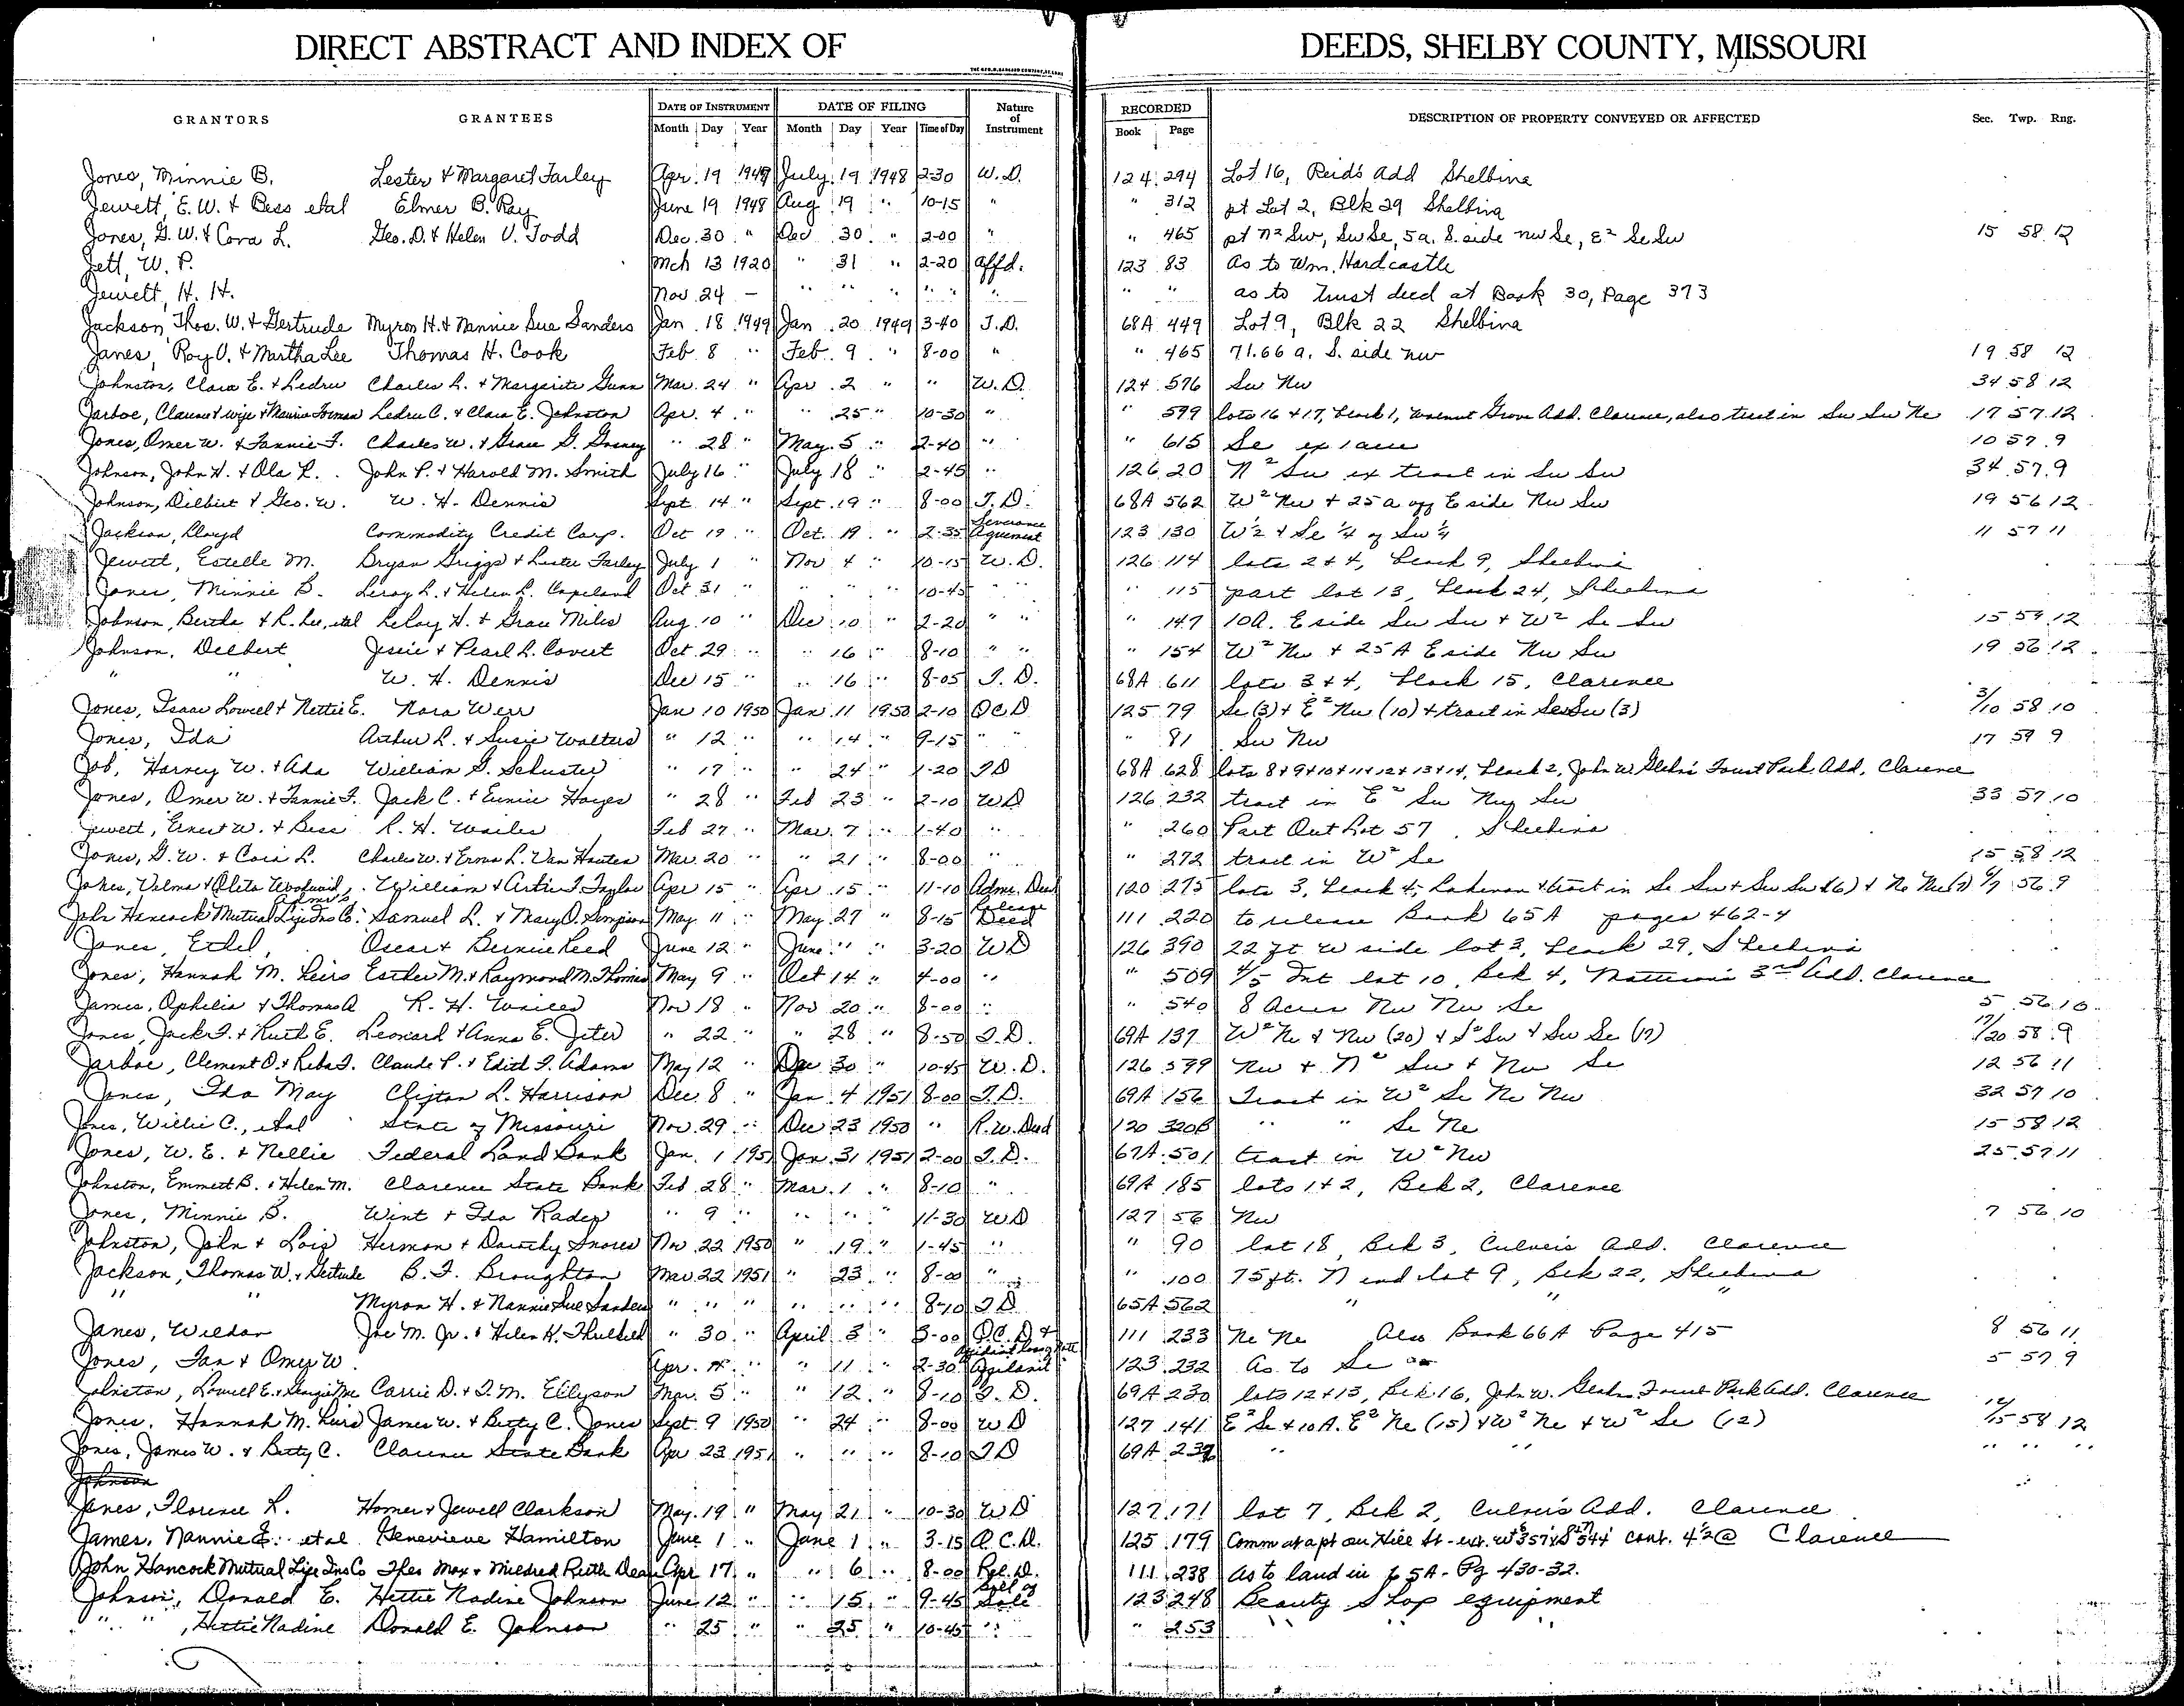 DIRECT ABSTRACT AND INDEX OF DEEDS, SHELBY COUNTY, MISSOURI
GRANTORS GRANTEES DATE OF INSTRUMENT DATE OF FILING Nature of Instrument RECORDED DESCRIPTION OF PROPERTY CONVEYED OR AFFECTED Sec. Twp. Rng.
Month Day Year Month Day Year Time of Day Book Page
Jones, Minnie B. Lester & Margaret Farley Apr. 19 July 19 1948 2-30 W.D. 124 294 Lot 16, Reids Add Shelbina
Jewett, E. W. & Bess etal Elmer B. Ray June 19 1948 Aug 19 " 10-15 " " 312 pt Lot 2, Blk 29 Shelbina
Jones, G. W. & Cora L. Geo. D. & Helen V. Todd Dec. 30 " Dec 30 " 2-00 " " 465 pt N2 Sw, Sw Se, 5a. S. side nw Se, E2 Se Sw 15 58 12
Jett, W. P. Mch 13 1920 " 31 " 2-20 affd. 123 83 as to Wm. Hardcastle
Jewett, H. H. Nov. 24 — " " " " " " " as to Trust deed at Book 30, Page 373
Jackson, Thos. W. & Gertrude Myron H. & Nannie Sue Sanders Jan. 18 1949 Jan. 20 1949 3-40 T.D. 68A 449 Lot 9, Blk 22 Shelbina
Janes, Roy O. & Martha Lee Thomas H. Cook Feb. 8 " Feb. 9 " 8-00 " " 465 71.66 a. S. side nw 19 58 12
Johnston, Clara E. & Ledru Charles L. & Margarite Gunn Mar. 24 " Apr. 2 " " W.D. 124 576 Sw Nw 34 58 12
Jarboe, Clarence & wife & Ledru C. & Clara E. Johnston Apr. 4 " " 25 " 10-30 " " 599 lots 16 & 17, block 1, Walnut Grove Add. Clarence, also tract in Sw Sw Ne 17 57 12
Jones, Omer W. & Fannie F. Charles W. & Grace G. " 28 " May 5 " 2-40 " " 615 Se ex 1 acre 10 57 9
Johnson, John H. & Ola L. John P. & Harold M. Smith July 16 " July 18 " 2-45 " 126 20 N2 Sw ex tract in Sw Sw 34 57 9
Johnson, Dilbert & Geo. W. W. H. Dennis Sept. 14 " Sept. 19 " 8-00 T.D. 68A 562 W2 Nw & 25 a off E side Nw Sw 19 56 12
Jackson, Lloyd Commodity Credit Corp. Oct 19 " Oct. 19 " 2-35 Severance Agreement 123 130 W½ & Se ¼ of Sw ¼ 11 57 11
Jewett, Estelle M. Bryan Griggs & Lester Farley July 1 " Nov 4 " 10-15 W.D. 126 114 lots 2 & 4, block 9, Shelbina
Jones, Minnie B. Leroy L. & Helen L. Copeland Oct 31 " " " " 10-45 " " " 115 part lot 13, block 24, Shelbina
Johnson, Bertha & R. Lee, etal LeRoy H. & Grace Miles Aug. 10 " Dec. 10 " 2-20 " " " 147 10A. E side Sw Sw & W2 Se Sw 15 59 12
Johnson, Delbert Jessie & Pearl L. Covert Oct. 29 " " 16 " 8-10 " " " 154 W2 Nw & 25 A E side Nw Sw 19 56 12
" " W. H. Dennis Dec 15 " " 16 " 8-05 T.D. 68A 611 lots 3 & 4, block 15, Clarence
Jones, Isaac Lowell & Nettie E. Nora Werr Jan 10 1950 Jan. 11 1950 2-10 QCD 125 79 Se (3) & E2 Nw (10) & tract in Se Sw (3) 3/10 58 10
Jones, Ida Arthur L. & Susie Walters " 12 " " 14 " 9-15 " " " 81 Sw Nw 17 59 9
Job, Harvey W. & Ada William G. Schuster " 17 " " 24 " 1-20 TD 68A 628 lots 8 & 9 & 10 & 11 & 12 & 13 & 14, block 2, John W. Forest Park Add, Clarence
Jones, Omer W. & Fannie F. Jack C. & Eunice Hayes " 28 " Feb 23 " 2-10 WD 126 232 tract in E2 Sw Nw Sw 33 57 10
Jewett, Ernest W. & Bess R. H. Wailes Feb 27 " Mar. 7 " 1-40 " " 260 Part Out Lot 57, Shelbina
Jones, G. W. & Cora L. Charles W. & Erma L. Van Houten Mar. 20 " " 21 " 8-00 " " 272 tract in W2 Se 15 58 12
Jones, Velma & Oleta Woodward, Admrs William & Artie F. Taylor Apr 15 " Apr. 15 " 11-10 Adm. Deed 120 275 lots 3, block 4, Lakenan & tract in Se Sw & Sw Sw (6) & Ne Nw (7) 6/7 56 9
John Hancock Mutual Life Ins Co. Samuel L. & Mary O. Simpson May 11 " May 27 " 8-15 Release Deed 111 220 to release Book 65A pages 462-4
Jones, Ethel, Oscar & Bernice Reed June 12 " June " " 3-20 WD 126 390 22 ft W side lot 3, block 29, Shelbina
Jones, Hannah M. Heirs Esther M. & Raymond M. Thomas May 9 " Oct 14 " 4-00 " " 509 4/5 Int lot 10, Blk 4, 3rd Add. Clarence
James, Ophelia & Thomas A R. H. Wailes Nov 18 " Nov 20 " 8-00 " " 540 8 Acres Nw Nw Se 5 56 10
Jones, Jack F. & Ruth E. Leonard & Anna E. Jeter " 22 " " 28 " 8-50 T.D. 69A 137 W2 Ne & Nw (20) & S2 Sw & Sw Se (17) 17/20 58 9
Jarboe, Clement O. & Reba F. Claude P. & Edith F. Adams May 12 " Dec 30 " 10-45 W.D. 126 579 Nw & N2 Sw & Nw Se 12 56 11
Jones, Ida May Clifton L. Harrison Dec. 8 " Jan. 4 1951 8-00 T.D. 69A 156 Tract in W2 Se Ne Nw 32 59 10
Jones, Willie C., etal State of Missouri Nov. 29 " Dec 23 1950 " R.W. Deed 120 320B " " Se Ne 15 58 12
Jones, W. E. & Nellie Federal Land Bank Jan. 1 1951 Jan. 31 1951 2-00 T.D. 67A 501 tract in W2 Nw 25 57 11
Johnston, Emmett B. & Helen M. Clarence State Bank Feb. 28 " Mar. 1 " 8-10 " 69A 185 lots 1 & 2, Blk 2, Clarence
Jones, Minnie B. Wint & Ida Rader " 9 " " " " 11-30 WD 127 56 Nw 7 56 10
Johnston, John & Lois Herman & Dorothy Nov. 22 1950 " 19 " 1-45 " " 90 lot 18, Blk 3, Culvers Add. Clarence
Jackson, Thomas W. & Gertrude B. F. Broughton Mar. 22 1951 " 23 " 8-00 " " 100 75 ft. N end lot 9, Blk 22, Shelbina
" " Myron H. & Nannie Sue Sanders " " " " " " 8-10 TD 65A 562 " " "
Janes, Wildar Joe M. Jr. & Helen K. Threlkeld " 30 " April 3 " 3-00 Q.C.D & 111 233 Ne Ne Also Book 66A Page 415 8 56 11
Jones, Ian & Omer W. Apr. " " 11 " 2-30 Affidavit 123 232 As to Se 5 57 9
Johnston, Lowell E. & Georgia Mae Carrie D. & T. M. Ellyson Mar. 5 " " 12 " 8-10 T.D. 69A 230 lots 12 & 13, Blk 16, John W. Forest Park Add. Clarence
Jones, Hannah M. Heirs James W. & Betty C. Jones Sept. 9 1950 " 24 " 8-00 WD 127 141 E2 Se & 10A. E2 Ne (15) & W2 Ne & W2 Se (12) 12/15 58 12
Jones, James W. & Betty C. Clarence State Bank Apr 23 1951 " " " 8-10 TD 69A " " " " "
Johnson
Janes, Florence L. Homer & Jewell Clarkson May 19 " May 21 " 10-30 WD 127 171 lot 7, Blk 2, Culvers Add. Clarence
James, Nannie E. etal Genevieve Hamilton June 1 " June 1 " 3-15 Q.C.D. 125 179 Comm at a pt on Hill St - cont. 4½@ Clarence
John Hancock Mutual Life Ins Co Thos Max & Mildred Ruth Dean Apr 17 " " 6 " 8-00 Rel. D. 111 238 As to land in 65A - Pg 430-32.
Johnson, Donald E. Hettie Nadine Johnson June 12 " " 15 " 9-45 Bill of Sale 123 248 Beauty Shop equipment
" " , Hettie Nadine Donald E. Johnson " 25 " " 25 " 10-45 " " 253 " " "